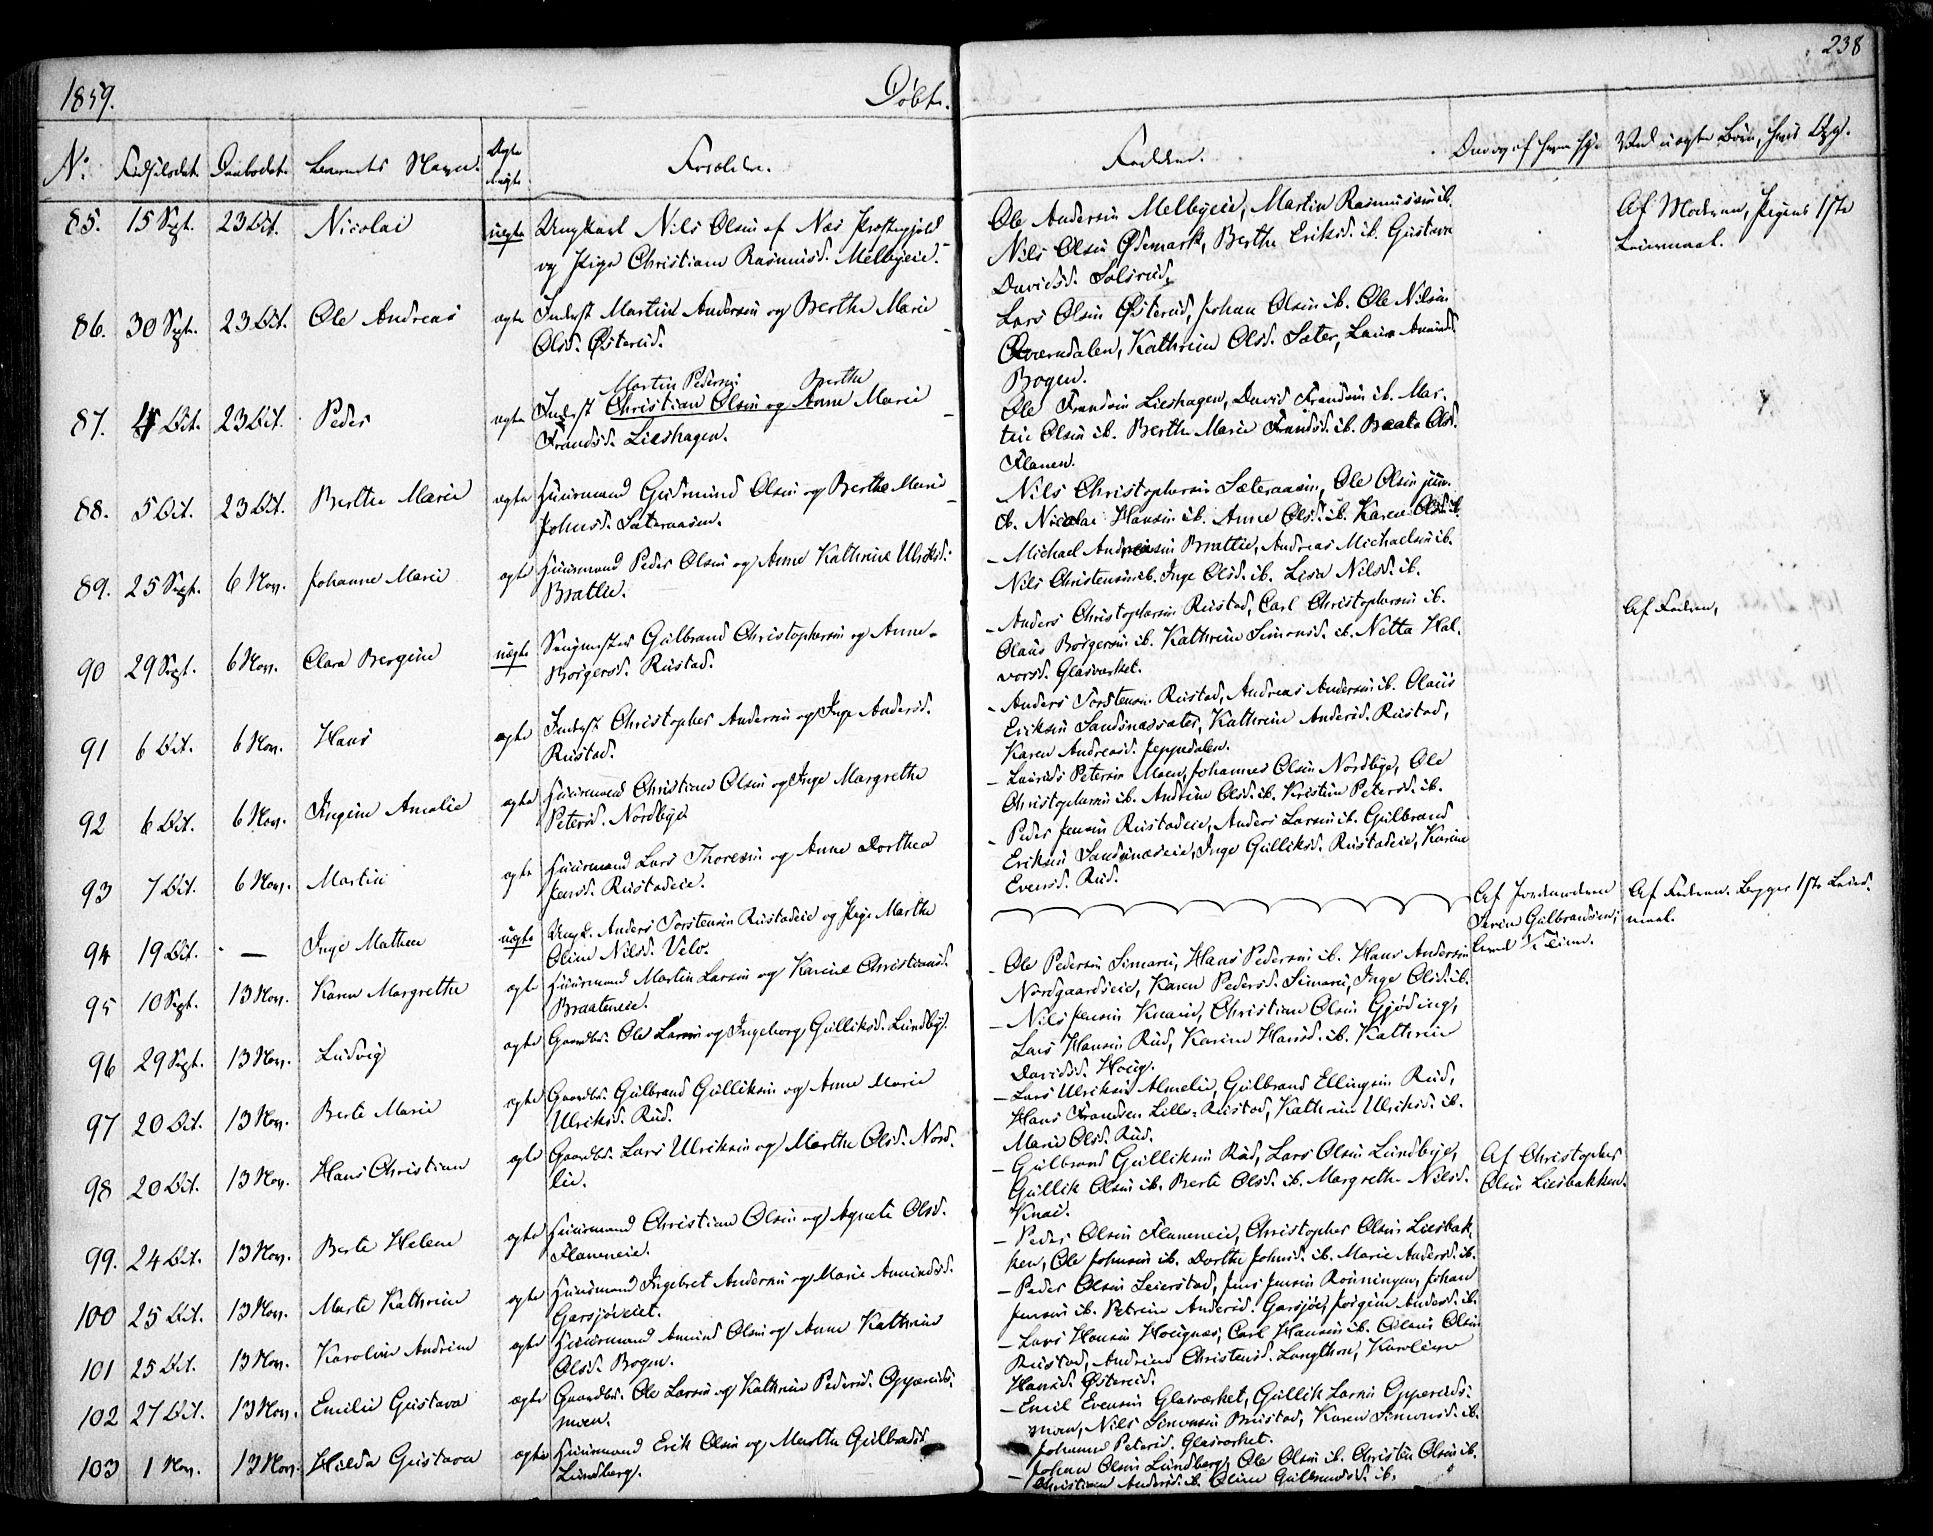 238
1859.
Døbte.
No. Fødselsdat. Daabsdat. Barnets Navn. Ægte uægte Forældre. Faddere.
85. 15 Sept. 23 Oct. Nicolai uægte Ungkarl Nils Olsen af Næs Præstegjeld
og Pige Christiane Rasmusd. Melbyeie.
Ole Andersen Melbyeie, Martin Rasmussen ib.
Nils Olsen Ødemark, Berthe Eriksd. ib. Gustava
Davidsd. Solsrud.
Af Moderen, Pigens 1ste
Leiermaal.
86. 30 Sept. 23 Oct. Ole Andreas ægte Inderst Martin Andersen og Berthe Marie
Olsd. Østerud.
Lars Olsen Østerud, Johan Olsen ib. Ole Nilsen
Qværndalen, Kathrine Olsd. Sæter, Laura Amundsd.
Bogen.
87. 4 Oct. 23 Oct. Peder ægte Inderst Christian Olsen og Anne Marie
Martin Pedersen Berthe
Frandsd. Lieshagen.
Ole Frandsen Lieshagen, David Frandsen ib. Mar-
tin Olsen ib. Berthe Marie Frandsd. ib. Beate Olsd.
Flanen.
88. 5 Oct. 23 Oct. Berthe Marie ægte Huusmand Gudmund Olsen og Berthe Marie
Johnsd. Sæteraasen.
Nils Christophersen Sæteraasen, Ole Olsen jun.
ib. Nicolai Hansen ib. Anne Olsd. ib. Karen Olsd. ib.
89. 25 Sept. 6 Nov. Johanne Marie ægte Huusmand Peder Olsen og Anne Kathrine Ulriksd.
Brattlie.
- Michael Andreasen Brattlie, Andreas Michaelsen ib.
Nils Christensen ib. Inge Olsd. ib. Lisa Nilsd. ib.
90 29 Sept. 6 Nov. Clara Bergine uægte Gulbrand Christophersen og Anne
Børgersd. Rustad.
- Anders Christophersen Rustad, Carl Christophersen ib.
Olaus Børgersen ib. Kathrine Simensd. ib. Netta Hal-
vorsd. Glasværket.
Af Faderen,
91 6 Oct. 6 Nov. Hans ægte Inderst Christopher Andersen og Inge Andersd.
Rustad.
- Anders Torstensen Rustad, Andreas Andersen ib. Olaus
Eriksen Sandsnæssæter, Kathrine Andersd. Rustad,
Karen Andreasd. Jeppedalen.
92 6 Oct. 6 Nov. Ingine Amalie ægte Huusmand Christian Olsen og Inge Margrethe
Petersd. Nordbye.
- Laurids Petersen Moen, Johannes Olsen Nordbye, Ole
Christophersen ib. Andrine Olsd. ib. Kristine Petersd. ib.
93 7 Oct. 6 Nov. Martin ægte Huusmand Lars Thoresen og Anne Dorthea
Jensd. Rustadeie.
- Peder Jensen Rustadeie, Anders Larsen ib. Gulbrand
Eriksen Sandsnæseie, Inge Gulliksd. Rustadeie, Karine
Evensd. Rud.
94 19 Oct. - Inge Mathea uægte Ungk. Anders Torstensen Rustadeie og Pige Marthe
Oline Nilsd. Velo.
Af Jordemoderen
Gulbrandsen,
Af Faderen. Begges 1ste Leier-
maal.
95 10 Sept. 13 Nov. Karen Margrethe ægte Huusmand Martin Larsen og Karine Christiansd.
Braateneie.
- Ole Pedersen Simarie, Hans Pedersen ib. Hans Andersen
Nordgaardseie, Karen Pedersd. Simarie, Inge Olsd. ib.
96 29 Sept. 13 Nov. Ludvig ægte Gaardbr. Ole Larsen og Ingeborg Gulliksd. Lundby.
- Nils Jensen Knaid, Christian Olsen Gjøding,
Lars Hansen Rud, Karine Hansd. ib. Kathrine
Davidsd. Houg.
97 20 Oct. 13 Nov. Berte Marie ægte Gaardbr. Gulbrand Gulliksen og Anne Marie
Ulriksd. Rud.
- Lars Ulriksen Almelie, Gulbrand Ellingsen Rud,
Hans Frandsen Lille-Rustad, Kathrine Ulriksd. ib.
Marie Olsd. Rud.
98 20 Oct. 13 Nov. Hans Christian ægte Gaardbr. Lars Ulriksen og Marthe Olsd. Nord-
lie.
- Gulbrand Gulliksen Rud, Lars Olsen Lundbye,
Gullik Olsen ib. Berte Olsd. ib. Margrethe Nilsd.
Knai.
Af Christopher
Olsen Liesbakken.
99. 24 Oct. 13 Nov. Berte Helene ægte Huusmand Christian Olsen og Agnete Olsd.
Flaneneie.
- Peder Olsen Flaneneie, Christopher Olsen Liesbak-
ken, Ole Johnsen ib. Dorthe Johnsd. ib. Marie Andersd. ib.
100 25 Oct. 13 Nov. Marte Kathrine ægte Huusmand Ingebret Andersen og Marie Amundsd.
Garsjøeiet.
- Peder Olsen Leierstad, Jens Jensen Rønningen, Johan
Jensen ib. Petrine Andersd. Garsjøe, Jørgine Andersd. ib.
101 25 Oct. 13 Nov. Karoline Andrine ægte Huusmand Amund Olsen og Anne Kathrine
Olsd. Bogen.
- Lars Hansen Hougnæs, Carl Hansen ib. Olaus Olsen
Rustad, Andrine Christensd. Langthon, Karoline
Hansd. Østerud.
102 27 Oct. 13 Nov. Emilie Gustava ægte Gaardbr. Ole Larsen og Kathrine Pedersd. Opperuds-
moen.
- Emil Evensen Glasværket, Gullik Larsen Opperuds-
moen, Nils Simensen Rustad, Karen Simensd. ib.
Johanne Petersd. Glasværket.
103 1 Nov. 13 Nov. Hilda Gustava ægte Huusmand Erik Olsen og Marthe Gulbrandsd.
Lundberg.
- Johan Olsen Lundberg, Ole Olsen ib. Christen Olsen ib.
Christiane Andersd. ib. Oline Gulbrandsd. ib.